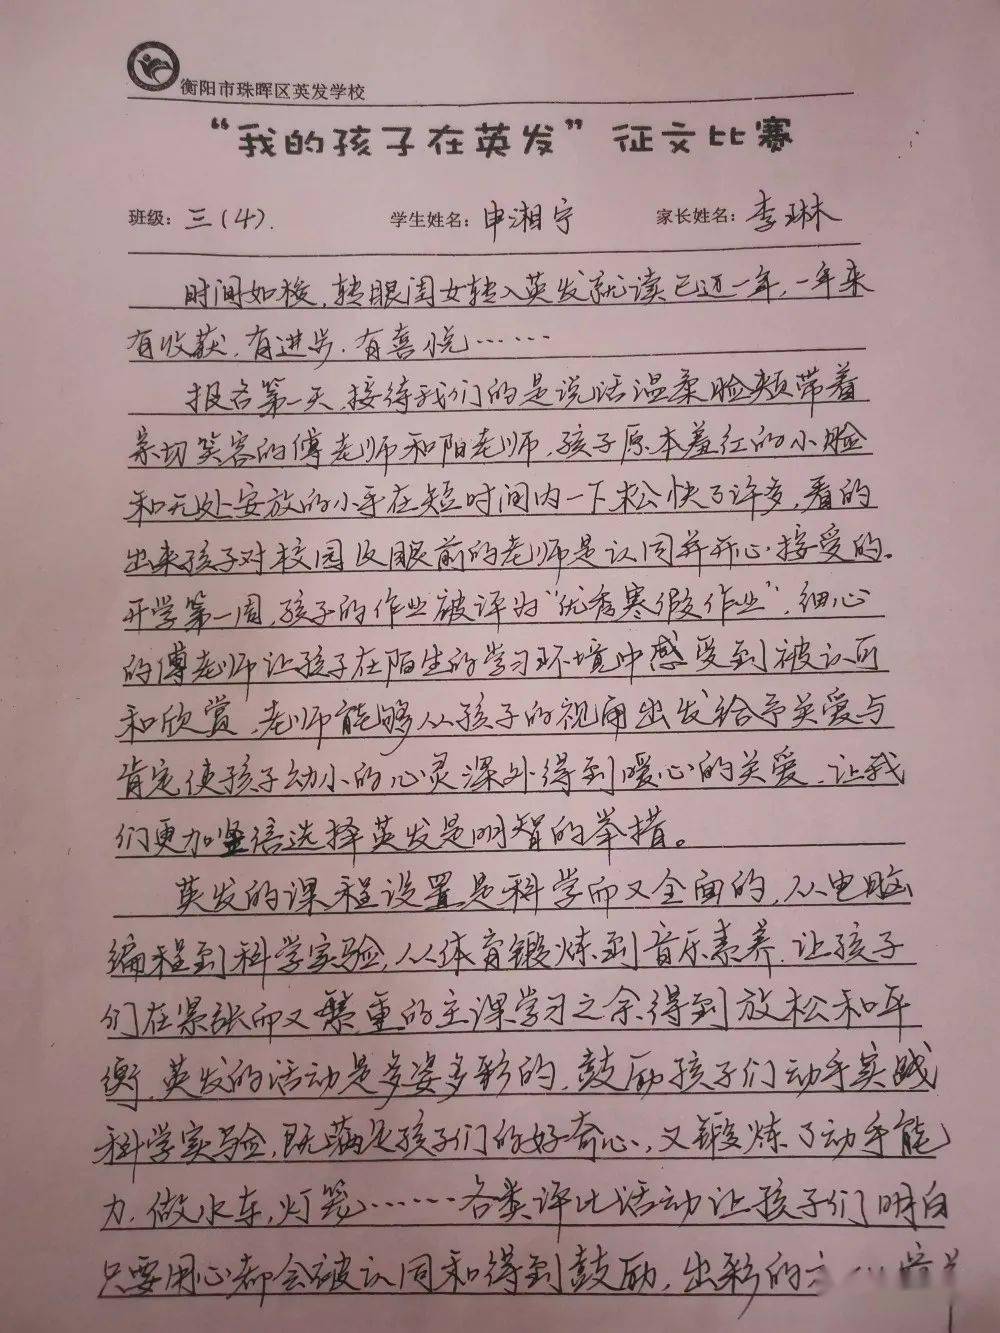 衡阳市珠晖区英发学校
“我的孩子在英发”征文比赛
班级：三(4). 学生姓名：申湘宁 家长姓名：李琳
时间如梭，转眼闺女转入英发就读已近一年，一年来
有收获，有进步，有喜悦……
报名第一天，接待我们的是说话温柔脸颊带着
亲切笑容的傅老师和阳老师，孩子原本羞红的小脸
和无处安放的小手在短时间内一下松快了许多，看的
出来孩子对校园及眼前的老师是认同并开心接受的。
开学第一周，孩子的作业被评为“优秀寒假作业”，细心
的傅老师让孩子在陌生的学习环境中感受到被认可
和欣赏，老师能够从孩子的视角出发给予关爱与
肯定使孩子幼小的心灵深处得到暖心的关爱，让我
们更加坚信选择英发是明智的举措。
英发的课程设置是科学而又全面的，从电脑
编程到科学实验，从体育锻炼到音乐素养，让孩子
们在紧张而又繁重的主课学习之余得到放松和平
衡，英发的活动是多姿多彩的，鼓励孩子们动手实践
科学实验，既满足孩子们的好奇心，又锻炼了动手能
力，做水车，灯笼……各类评比活动让孩子们明白
只要用心都会被认同和得到鼓励，出彩的